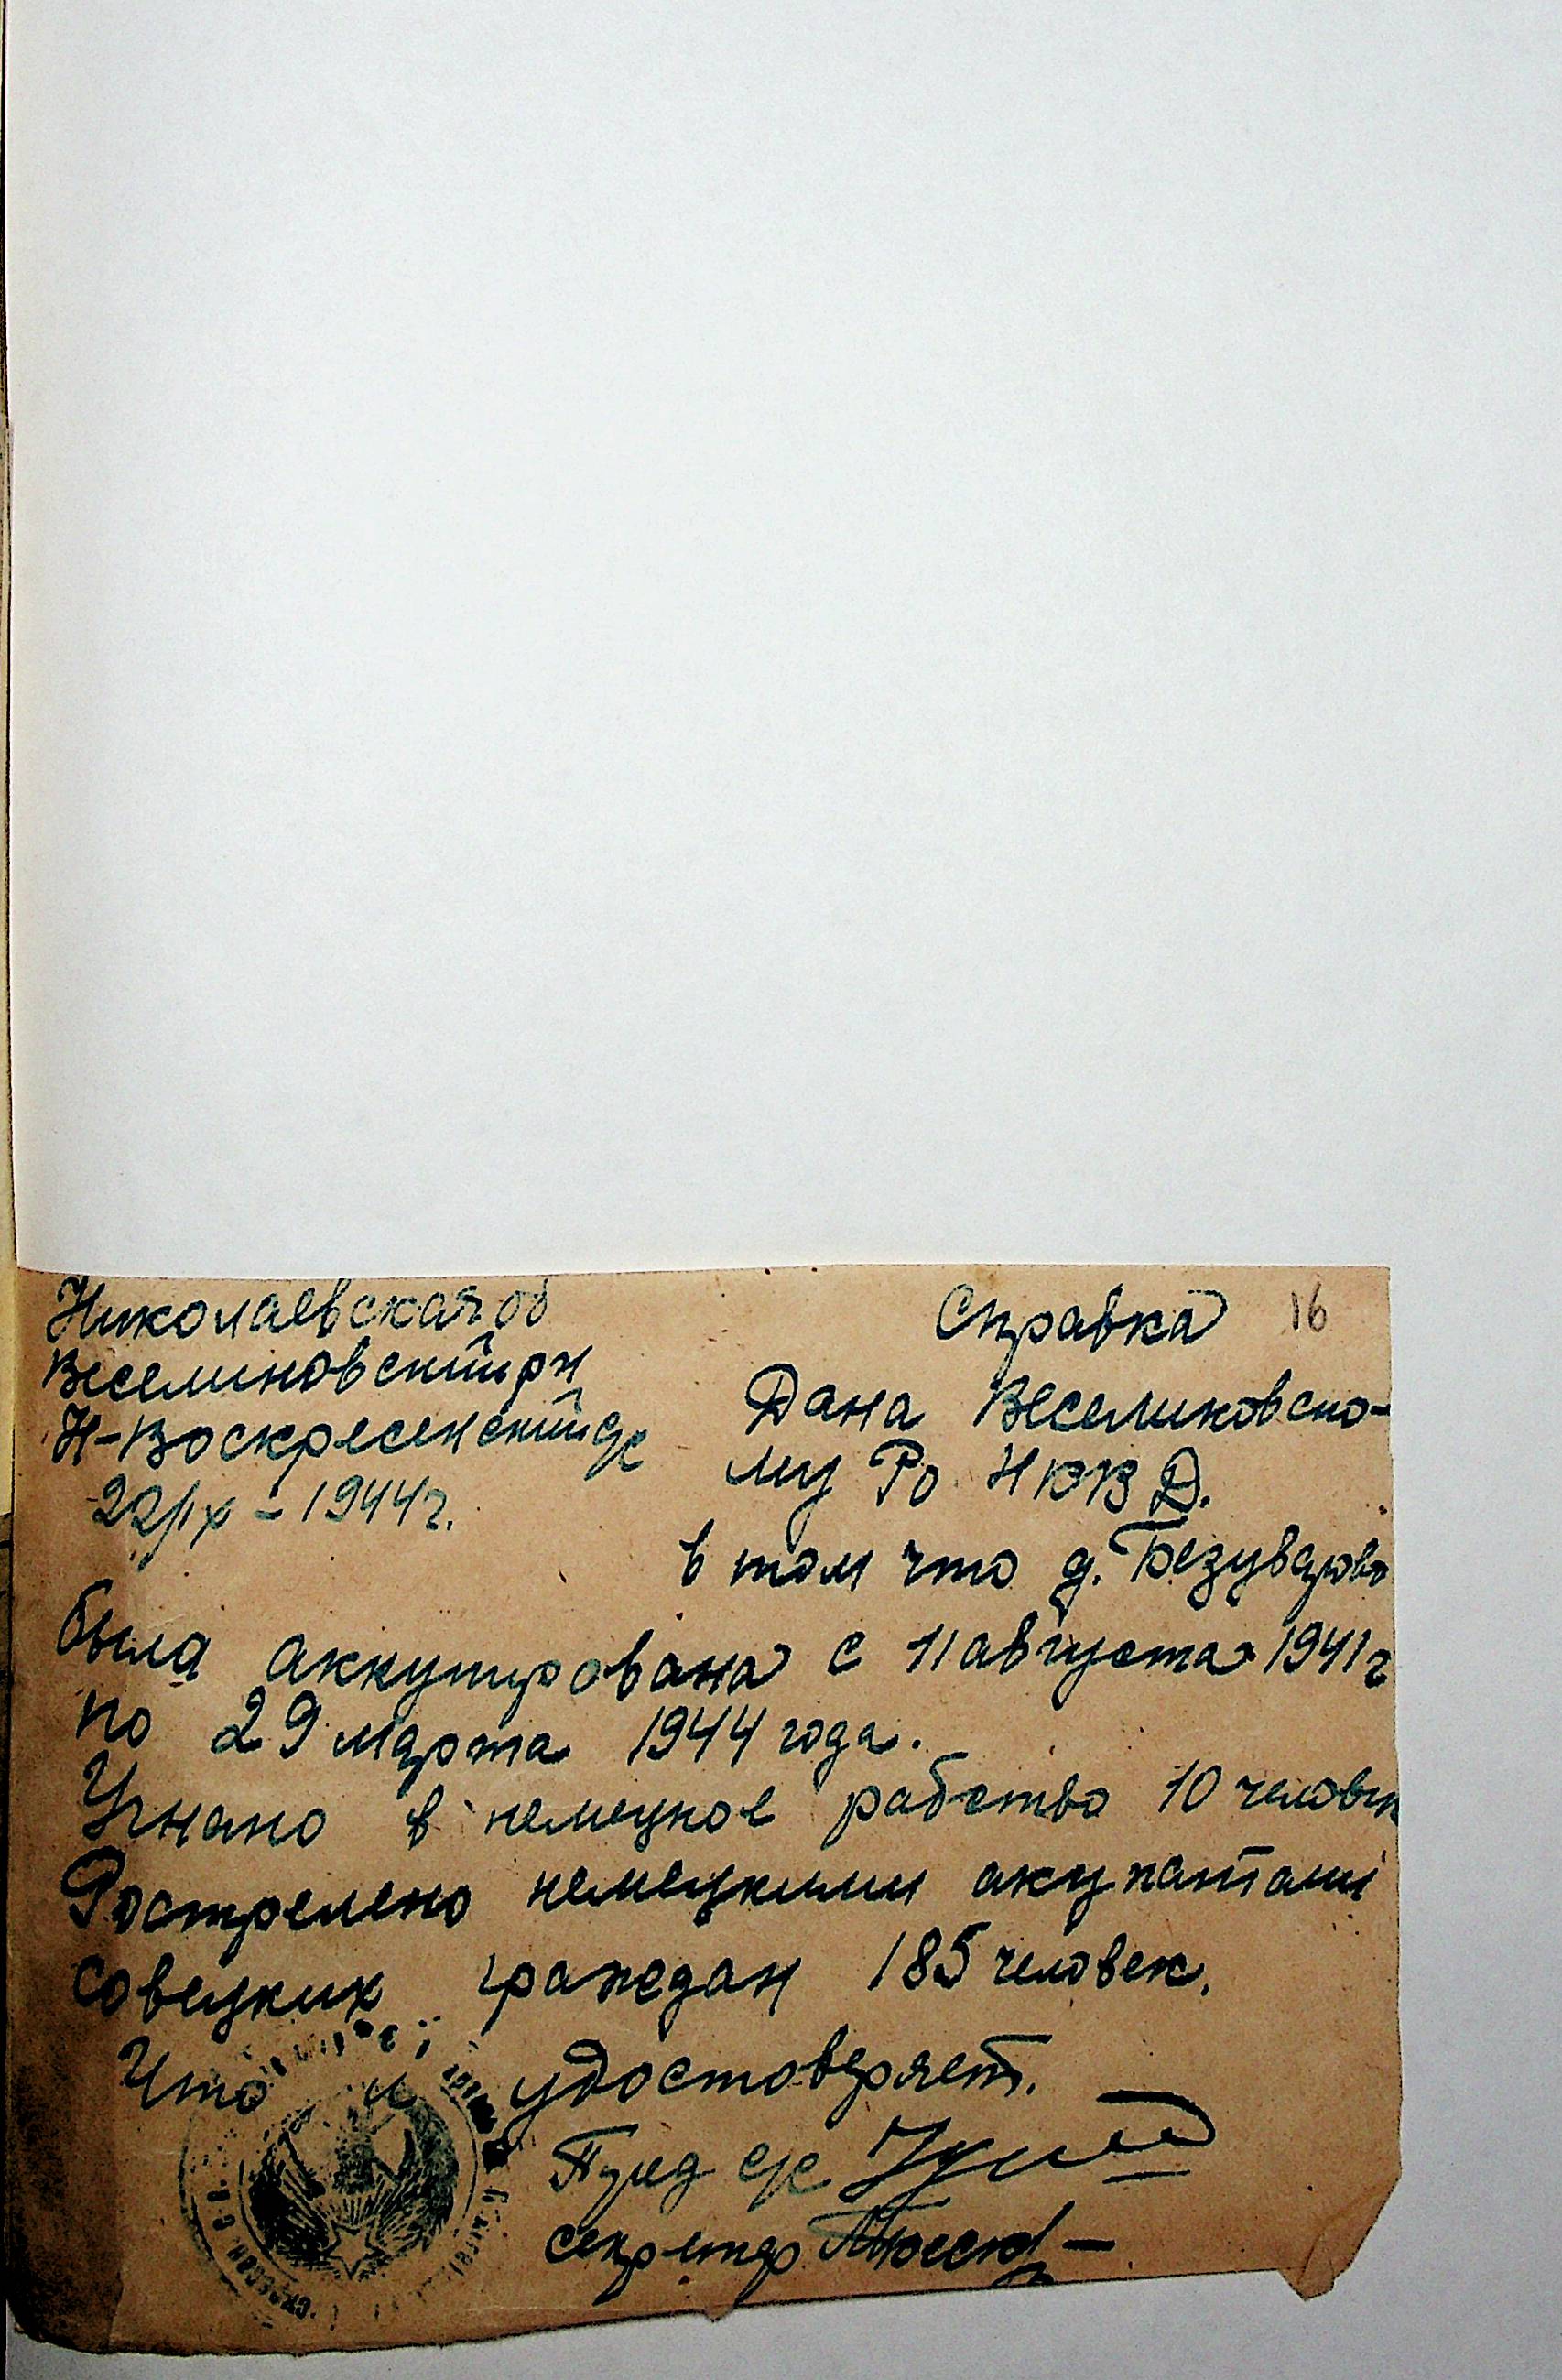 Николаевская об
Веселиновский рн
Н-Воскресенский с/с
22/IX - 1944 г.
Справка 16
Дана Веселиновско-
му Ро НКВД.
в том что д. Безуварово
была аккупирована с 11 августа 1941 г
по 29 марта 1944 года.
Угнано в немецкое рабство 10 человек
Росстрелено немецкими акупантами
совецких граждан 185 человек.
Что и удостоверяет.
Пред с/с
секретар